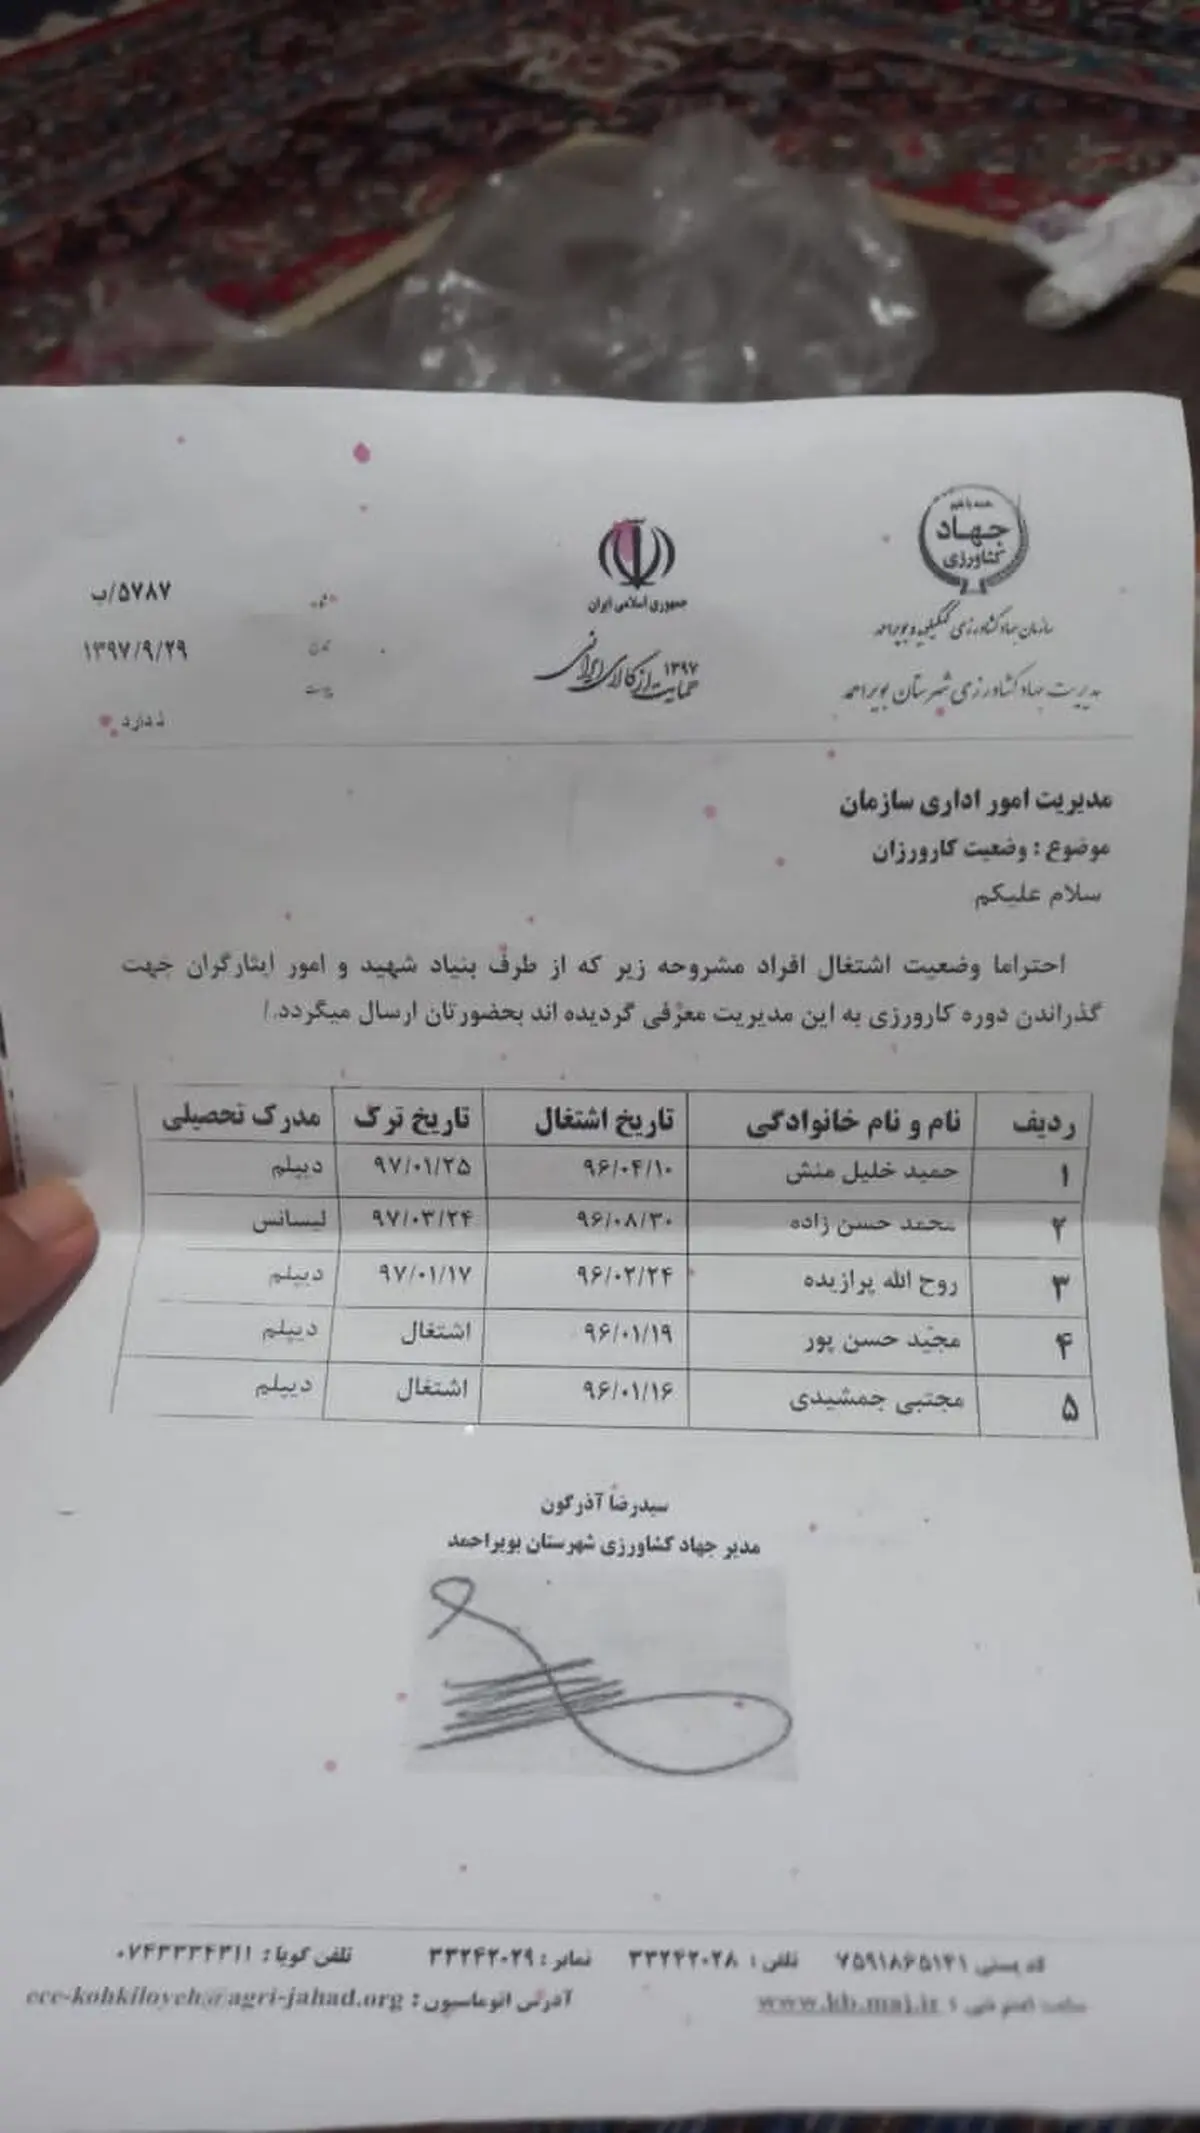 همه با هم
جهاد
کشاورزی
سازمان جهاد کشاورزی کهگیلویه و بویراحمد
مدیریت جهاد کشاورزی شهرستان بویراحمد
جمهوری اسلامی ایران
۱۳۹۷
حمایت از کالای ایرانی
۵۷۸۷/ب
۱۳۹۷/۹/۲۹
ندارد
مدیریت امور اداری سازمان
موضوع : وضعیت کارورزان
سلام علیکم
احتراما وضعیت اشتغال افراد مشروحه زیر که از طرف بنیاد شهید و امور ایثارگران جهت
گذراندن دوره کارورزی به این مدیریت معرفی گردیده اند بحضورتان ارسال میگردد./
ردیف نام و نام خانوادگی تاریخ اشتغال تاریخ ترک مدرک تحصیلی
۱ حمید خلیل منش ۹۶/۰۴/۱۰ ۹۷/۰۱/۲۵ دیپلم
۲ محمد حسن زاده ۹۶/۰۸/۳۰ ۹۷/۰۳/۲۴ لیسانس
۳ روح الله پرازیده ۹۶/۰۲/۲۴ ۹۷/۰۱/۱۷ دیپلم
۴ مجید حسن پور ۹۶/۰۱/۱۹ اشتغال دیپلم
۵ مجتبی جمشیدی ۹۶/۰۱/۱۶ اشتغال دیپلم
سیدرضا آذرگون
مدیر جهاد کشاورزی شهرستان بویراحمد
کد پستی ۷۵۹۱۸۶۵۱۴۱ تلفن : ۳۳۲۴۲۰۲۸ نمابر : ۳۳۲۴۲۰۲۹ تلفن گویا : ۰۷۴۳۳۳۴۳۱۱
www.kb.maj.ir آدرس اتوماسیون : ece-kohkiloyeh@agri-jahad.org